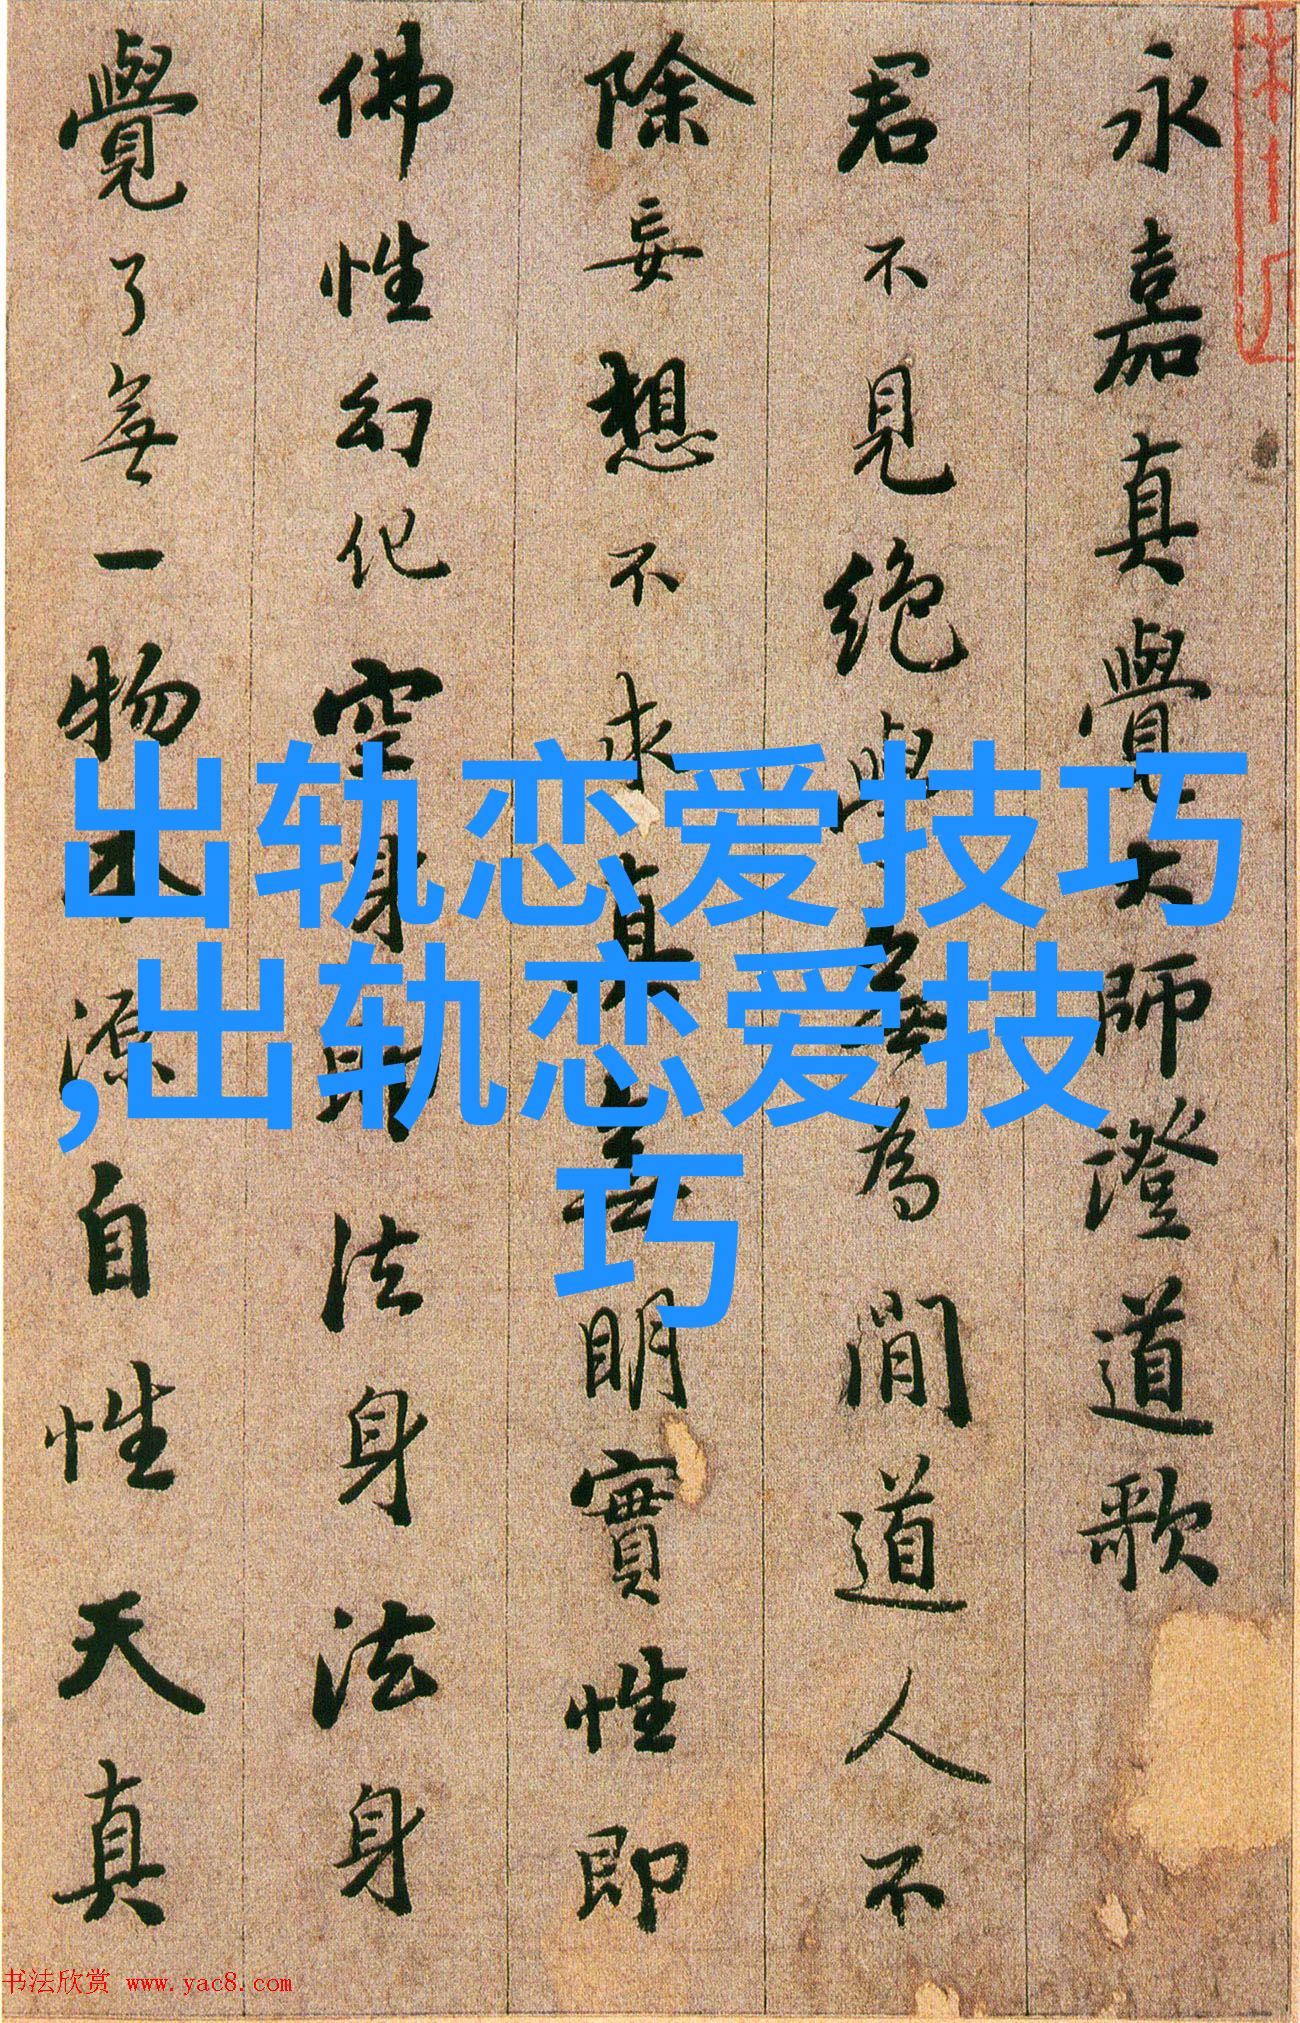 永嘉真覺大師澄道歌
君不見絕學無為閒道人不
除妄想不求真無明實性即
佛性幻化空身即法身法身
覺了無一物本源自性天真
出轨恋爱技巧
,出轨恋爱技
巧
书法欣赏 www.yac8.com